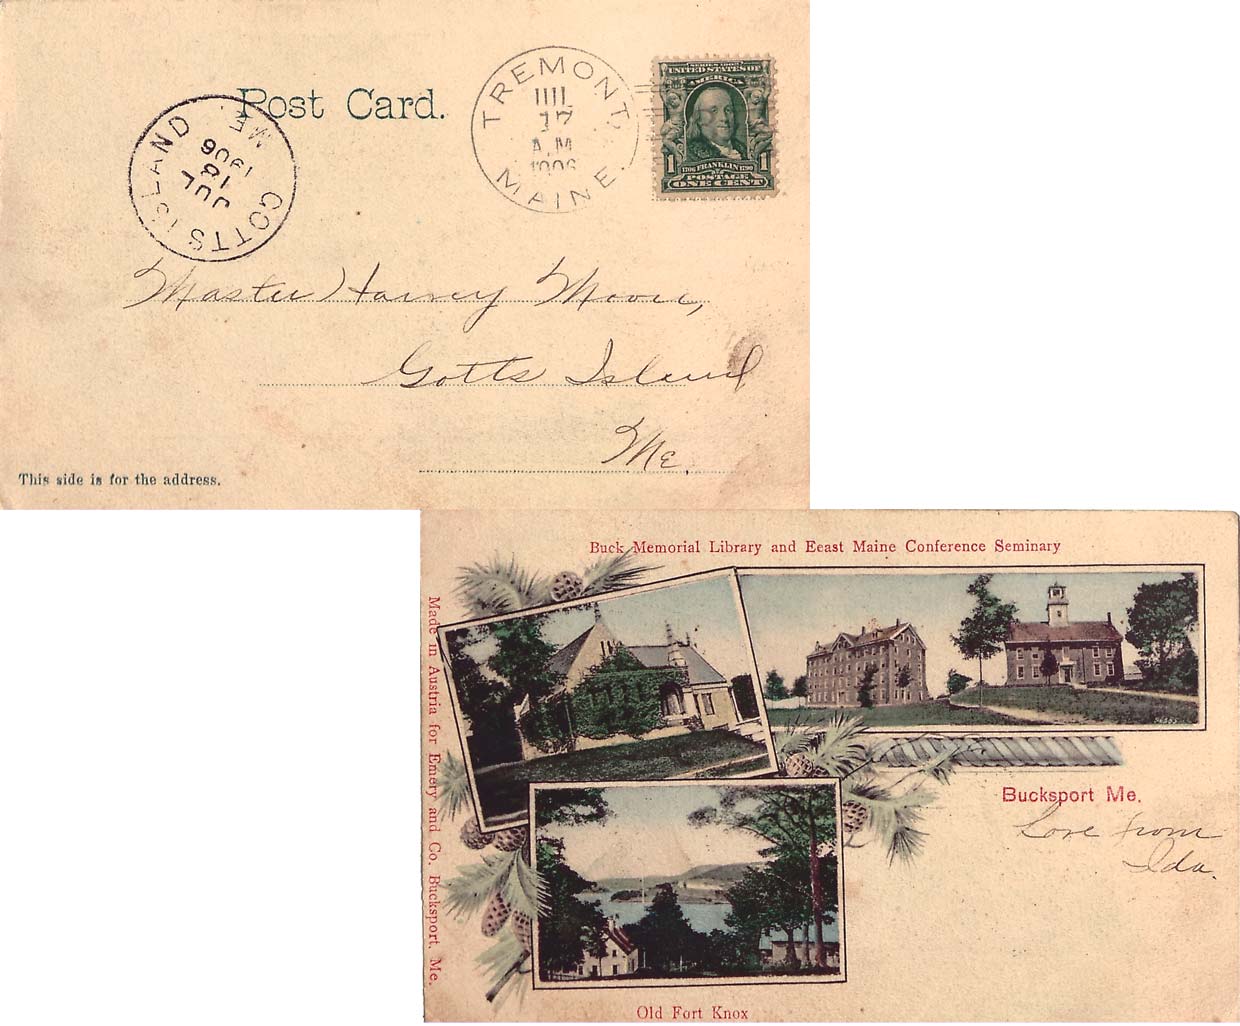 Post Card.
TREMONT,
JUL
17
A.M
1906
MAINE.
SERIES 1902
UNITED STATES OF
AMERICA
1 1706 FRANKLIN 1790 1
POSTAGE
ONE CENT
GOTTS ISLAND ME.
JUL
18
1906
Master Harvey Moore,
Gotts Island
Me.
This side is for the address.
Buck Memorial Library and Eeast Maine Conference Seminary
Made in Austria for Emery and Co. Bucksport, Me.
Bucksport Me.
Love from
Ida.
Old Fort Knox